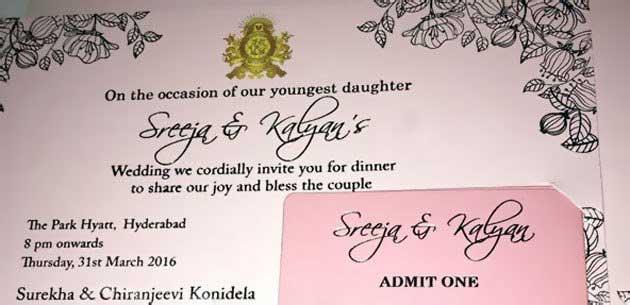 On the occasion of our youngest daughter
Sreeja & Kalyan's
Wedding we cordially invite you for dinner
to share our joy and bless the couple
The Park Hyatt, Hyderabad
8 pm onwards
Thursday, 31st March 2016
Surekha & Chiranjeevi Konidela
Sreeja & Kalyan
ADMIT ONE